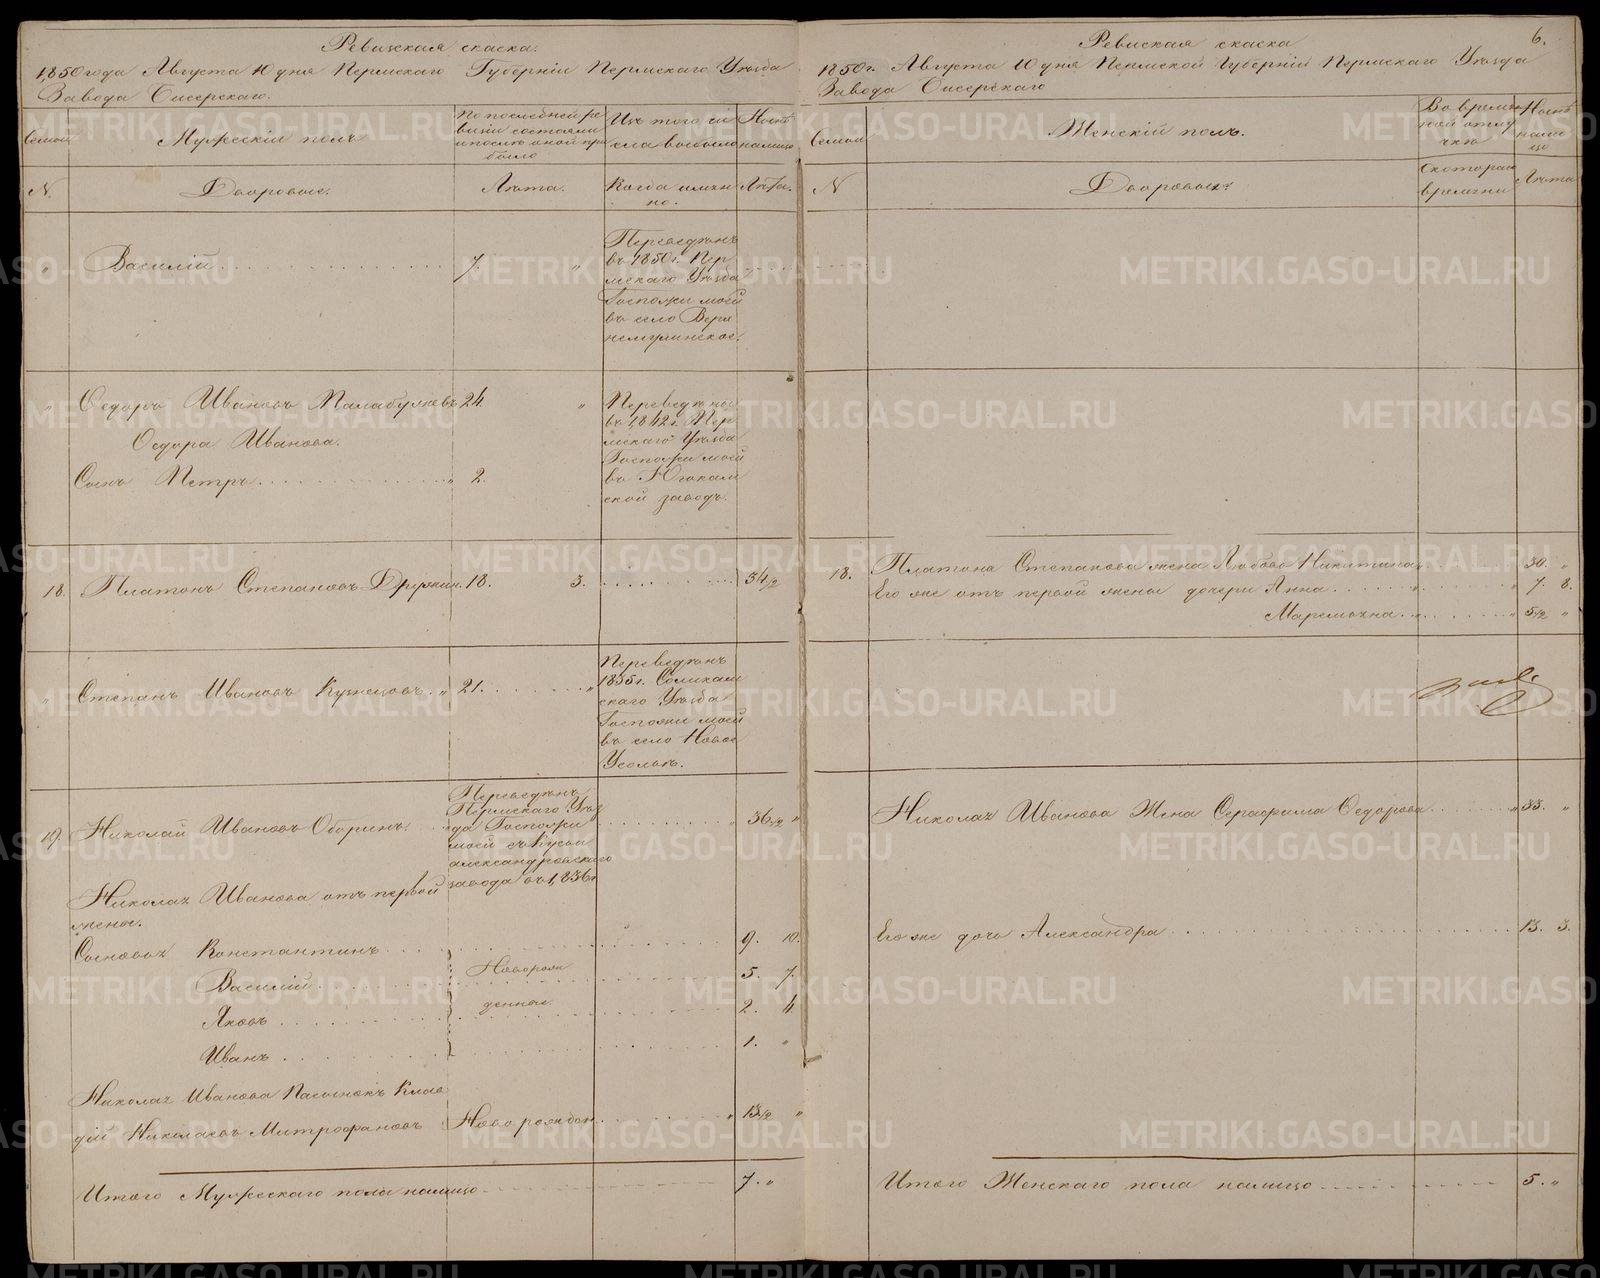 Ревизская скаска.
1850 года Августа 10 дня Пермскаго Губернiи Пермскаго Уѣзда
Завода Бисерскаго.
Семьи
Мужескiй полъ
По последней ре
визiи состояли
и послѣ оной при
было
Изъ того чи
сла выбыло
Нынѣ
налицо
N.
Дворовые.
Лѣта.
Когда имян
но.
Лѣта.
" Василiй 7. "
Переведѣнъ
въ 1850 г. Пер
мскаго Уѣзда
Госпожи моей
въ село Верх
немулинское.
" Ѳедоръ Ивановъ Малабуяевъ 24. "
Ѳедора Иванова.
Сынъ Петръ " 2.
Переведѣны
въ 1842 г. Пер
мскаго Уѣзда
Госпожи моей
въ Югокам
ской заводъ.
18. Платонъ Степановъ Дружин. 18. 3. 34½
" Степанъ Ивановъ Кузнецовъ " 21. "
Переведѣнъ
1835 г. Соликам
скаго Уѣзда
Госпожи моей
въ село Новое
Усолье.
19. Николай Ивановъ Оборинъ. 36½ "
Переведѣнъ
Пермскаго Уѣз
да Госпожи
моей съ Кусьи
александровскаго
завода въ 1836 г
Николая Иванова отъ первой
жены.
Сыновья Константинъ 9. 10.
Василiй 5. 7.
Яковъ 2. 4.
Иванъ 1. "
Новорож
денные.
Николая Иванова Пасынокъ Клав
дiй Николаевъ Митрофановъ Новорожден. " 13½ "
Итого Мужескаго пола налицо 7. "
6.
Ревиская скаска
1850 г. Августа 10 дня Пермской Губернiи Пермскаго Уѣзда
Завода Бисерскаго
Семьи
Женскiй полъ.
Во времян
ной отлу
чкѣ
Нынѣ
нали
цо
N
Дворовые.
Скотораго
времени
Лѣта
18. Платона Степанова жена Любовь Никитина 30. "
Его же отъ первой жены дочери Анна " 7. 8.
Маремьяна " 5½ "
Николая Иванова Жена Серафима Ѳедорова " 33. "
Его же дочь Александра 13. 3.
Итого Женскаго пола налицо 5. "
METRIKI.GASO-URAL.RU